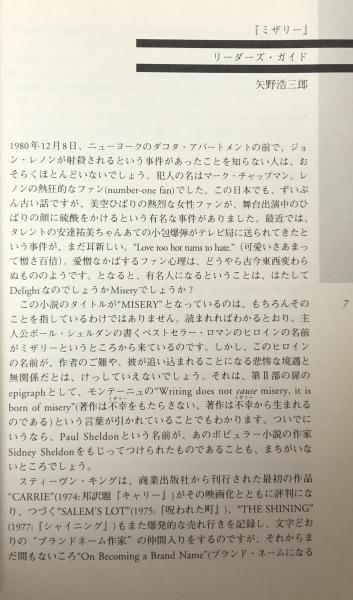 『ミザリー』
リーダーズ・ガイド
矢野浩三郎
1980年12月8日、ニューヨークのダコタ・アパートメントの前で、ジョ
ン・レノンが射殺されるという事件があったことを知らない人は、お
そらくほとんどいないでしょう。犯人の名はマーク・チャップマン。レ
ノンの熱狂的なファン(number-one fan)でした。この日本でも、ずいぶ
ん古い話ですが、美空ひばりの熱烈な女性ファンが、舞台出演中のひ
ばりの顔に硫酸をかけるという有名な事件がありました。最近では、
タレントの安達祐美ちゃんあての小包爆弾がテレビ局に送られてきたと
いう事件が、まだ耳新しい。“Love too hot turns to hate.”（可愛いさあまっ
て憎さ百倍）。愛憎なかばするファン心理は、どうやら古今東西変わら
ぬもののようです。となると、有名人になるということは、はたして
DelightなのでしょうかMiseryでしょうか？
この小説のタイトルが“MISERY”となっているのは、もちろんその
ことを指しているわけではありません。読まれればわかるとおり、主
人公ポール・シェルダンの書くベストセラー・ロマンのヒロインの名前
がミザリーというところから来ているのです。しかし、このヒロイン
の名前が、作者のご難や、彼が追い込まれることになる悲惨な境遇と
無関係だとは、けっしていえないでしょう。それは、第Ⅱ部の扉の
epigraphとして、モンテーニュの“Writing does not cause misery, it is
born of misery”(著作は不幸をもたらさない、著作は不幸から生まれる
のである)という言葉が引かれていることでもわかります。ついでに
いうなら、Paul Sheldonという名前が、あのポピュラー小説の作家
Sidney Sheldonをもじってつけられたものであることも、まちがいな
いところでしょう。
スティーヴン・キングは、商業出版社から刊行された最初の作品
“CARRIE”(1974:邦訳題『キャリー』)がその映画化とともに評判にな
り、つづく“SALEM'S LOT”(1975:『呪われた町』)、“THE SHINING”
(1977:『シャイニング』)もまた爆発的な売れ行きを記録し、文字どお
りの“ブランドネーム作家”の仲間入りをするのですが、それからま
だ間もないころ“On Becoming a Brand Name”(ブランド・ネームになる
7